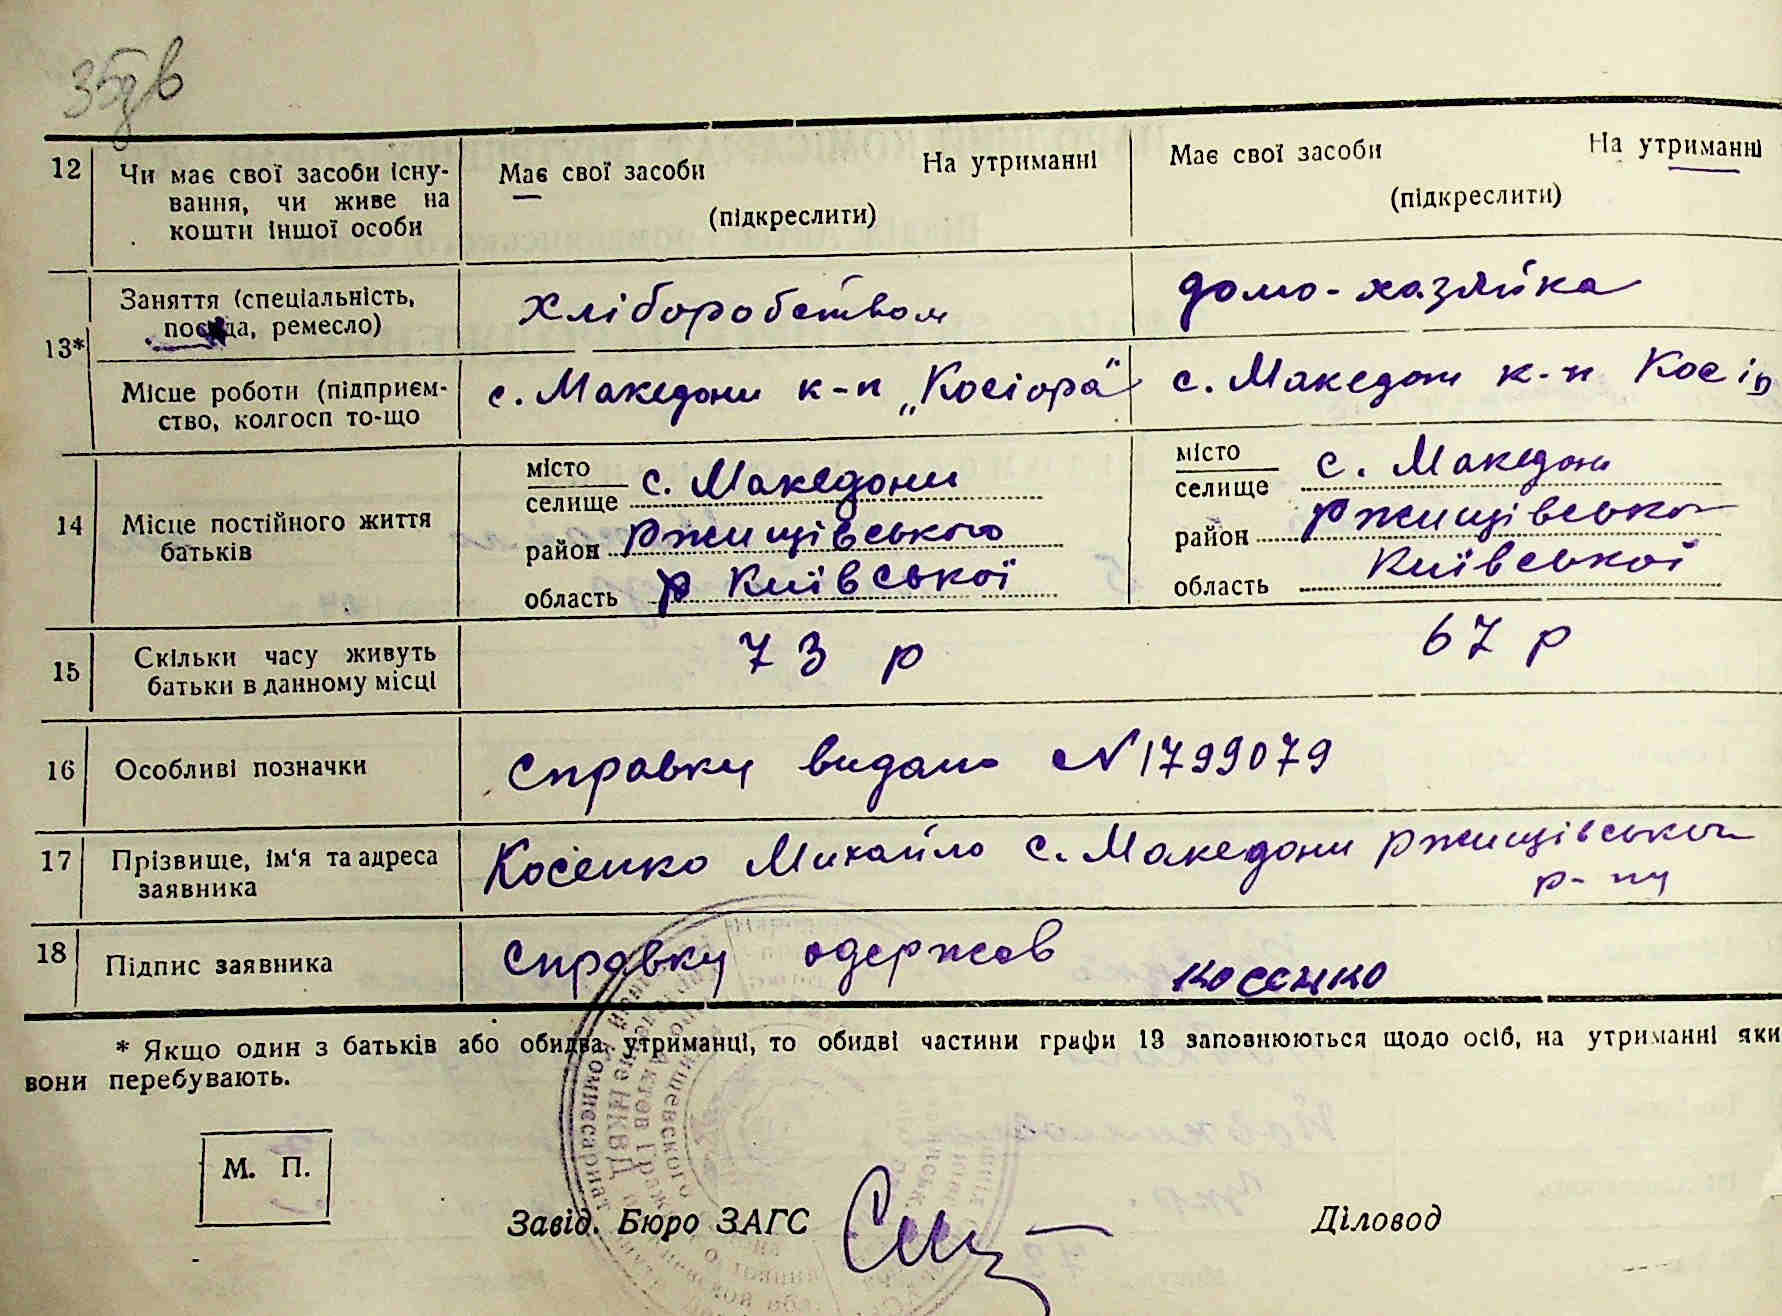 12 Чи має свої засоби існу-
вання, чи живе на
кошти іншої особи
Має свої засоби На утриманні
(підкреслити)
Має свої засоби На утриманні
(підкреслити)
13* Заняття (спеціальність,
посада, ремесло)
Хліборобством
домо-хазяйка
Місце роботи (підприєм-
ство, колгосп то-що
с. Македони к-п „Косіора"
с. Македони к-п Косів
14 Місце постійного життя
батьків
місто
селище с. Македони
район Ржищівського
область Київської
місто
селище с. Македони
район Ржищівського
область Київської
15 Скільки часу живуть
батьки в данному місці
73 р
67 р
16 Особливі позначки
Справку видано N 1799079
17 Прізвище, ім'я та адреса
заявника
Косенко Михайло с. Македони Ржищівського
р-ну
18 Підпис заявника
Справку одержав Косенко
* Якщо один з батьків або обидва утриманці, то обидві частини графи 13 заповнюються щодо осіб, на утриманні яки
вони перебувають.
М. П.
Завід. Бюро ЗАГС
Діловод